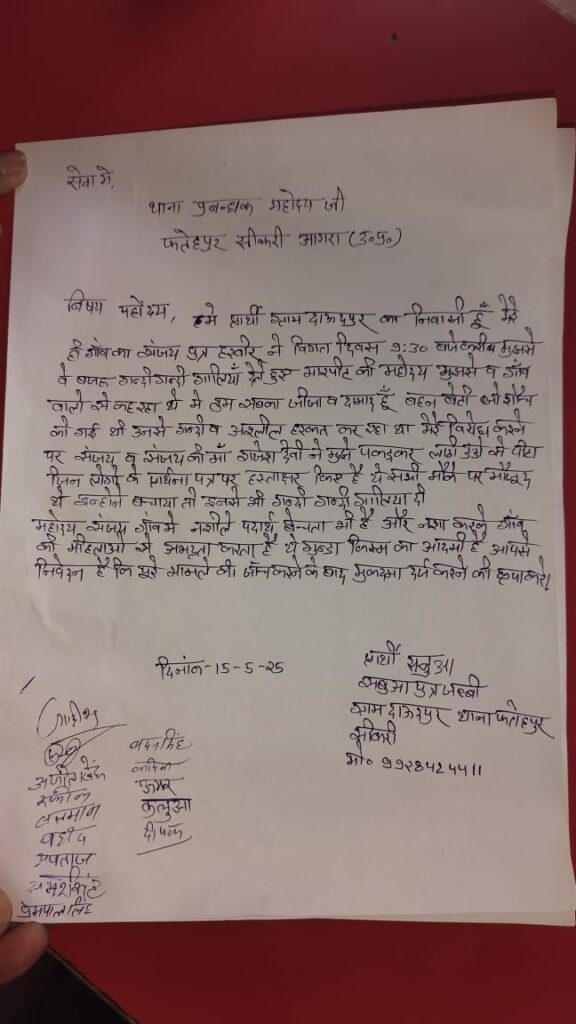 सेवा में,
थाना प्रबन्धक महोदय जी
फतेहपुर सीकरी आगरा (उ०प्र०)
विषय महोदय, हमे प्रार्थी ग्राम दाऊदपुर का निवासी हूँ मेरे
ही गाँव का संजय पुत्र हरवीर ने विगत दिवस 9:30 बजे करीब मुझसे
वे बजह गन्दी गन्दी गालियाँ देते हुए मारपीट की महोदय मुझसे व गाँव
वालो से कह रहा थे मे तुम सबका जीजा व दामाद हूँ बहन बेटी जो शौच
को गई थी उनसे गन्दी व अश्लील हरकत कर रहा था मेरे विरोध करने
पर संजय व संजय की माँ राजेश देवी ने मुझे पकड़कर लाठी डंडो से पीटा
जिन लोगो के प्रार्थना पत्र पर हस्ताक्षर किए है ये सभी मौके पर मौजूद
थे इन्होने बचाया तो इनसे भी गन्दी गन्दी गालिया दी
महोदय संजय गाँव मे नशीले पदार्थ बेचता भी है और नशा करके गाँव
की महिलाओ से अभद्रता करता है ये गुन्डा किस्म का आदमी है आपसे
निवेदन है कि पूरे मामले की जाँच करने के बाद मुकदमा दर्ज करने की कृपा करे।
दिनांक-15-5-25
प्रार्थी
पुत्र
ग्राम दाऊदपुर थाना फतेहपुर
सीकरी
मो०
वदनसिंह
कलुआ
दीपक
प्रेमपाल सिंह